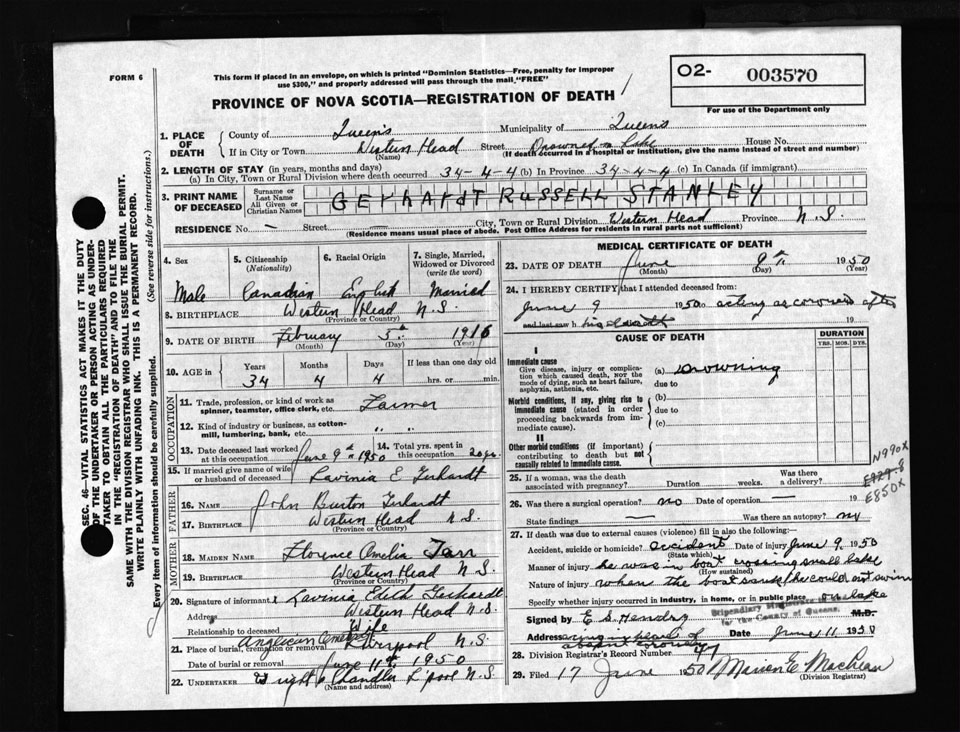 FORM 6
This form if placed in an envelope, on which is printed "Dominion Statistics—Free, penalty for improper
use $300," and properly addressed will pass through the mail "FREE"
O2- 003570
For use of the Department only
PROVINCE OF NOVA SCOTIA—REGISTRATION OF DEATH
1. PLACE OF DEATH County of Queens Municipality of Queens
If in City or Town Western Head Street Drowned in Lake House No.
(Name) (If death occurred in a hospital or institution, give the name instead of street and number)
2. LENGTH OF STAY (in years, months and days)
(a) In City, Town or Rural Division where death occurred 34-4-4 (b) In Province 34-4-4 (c) In Canada (if immigrant)
3. PRINT NAME OF DECEASED Surname or Last Name All Given or Christian Names GerhardT RUSSELL STANLEY
RESIDENCE No. — Street City, Town or Rural Division Western Head Province N.S.
(Residence means usual place of abode. Post Office Address for residents in rural parts not sufficient)
4. Sex 5. Citizenship (Nationality) 6. Racial Origin 7. Single, Married, Widowed or Divorced (write the word)
Male Canadian English Married
8. BIRTHPLACE Western Head N.S.
(Province or Country)
9. DATE OF BIRTH February 5th 1916
(Month) (Day) (Year)
10. AGE in Years Months Days If less than one day old
34 4 4 hrs. or min.
OCCUPATION
11. Trade, profession, or kind of work as spinner, teamster, office clerk, etc. Farmer
12. Kind of industry or business, as cotton-mill, lumbering, bank, etc. " "
13. Date deceased last worked at this occupation June 9th 1950 14. Total yrs. spent in this occupation 20 yrs.
15. If married give name of wife or husband of deceased Lavinia E Gerhardt
FATHER
16. NAME John Burton Gerhardt
17. BIRTHPLACE Western Head N.S.
(Province or Country)
MOTHER
18. MAIDEN NAME Florence Amelia Tarr
19. BIRTHPLACE Western Head N.S.
(Province or Country)
20. Signature of informant x Lavinia Edith Gerhardt
Address Western Head N.S.
Relationship to deceased Wife
21. Place of burial, cremation or removal Anglican Cemetery Liverpool N.S.
Date of burial or removal June 11th 1950
22. UNDERTAKER Wright & Chandler L'pool N.S.
(Name and address)
MEDICAL CERTIFICATE OF DEATH
23. DATE OF DEATH June 9th 1950
(Month) (Day) (Year)
24. I HEREBY CERTIFY that I attended deceased from:
June 9 1950 acting as coroner after
and last saw h his death 19
CAUSE OF DEATH DURATION
YRS. MOS. DYS.
I
Immediate cause
Give disease, injury or complication which caused death, not the mode of dying, such as heart failure, asphyxia, asthenia, etc.
(a) Drowning
due to
Morbid conditions, if any, giving rise to immediate cause (stated in order proceeding backwards from immediate cause).
(b)
due to
(c)
II
Other morbid conditions (if important) contributing to death but not causally related to immediate cause.
25. If a woman, was the death associated with pregnancy? Duration weeks. Was there a delivery?
N990X
E929-8
E850X
26. Was there a surgical operation? no Date of operation — 19
State findings — Was there an autopsy? no
27. If death was due to external causes (violence) fill in also the following:
Accident, suicide or homicide? accident Date of injury June 9 1950
(State which)
Manner of injury he was in boat crossing small lake
(How sustained)
Nature of injury when the boat sank he could not swim
Specify whether injury occurred in industry, in home, or in public place on lake
Stipendiary Magistrate
for the County of Queens
Signed by E. S. Hendry M.D.
Address acting in place of
absent coroner Date June 11 1950
28. Division Registrar's Record Number 47
29. Filed 17 June 1950 Marion E MacLean
(Division Registrar)
SEC. 46—VITAL STATISTICS ACT MAKES IT THE DUTY
OF THE UNDERTAKER OR PERSON ACTING AS UNDER-
TAKER TO OBTAIN ALL THE PARTICULARS REQUIRED
IN THE "REGISTRATION OF DEATH" AND TO FILE THE
SAME WITH THE DIVISION REGISTRAR WHO SHALL ISSUE THE BURIAL PERMIT.
WRITE PLAINLY WITH UNFADING INK. THIS IS A PERMANENT RECORD.
Every item of information should be carefully supplied. (See reverse side for instructions.)